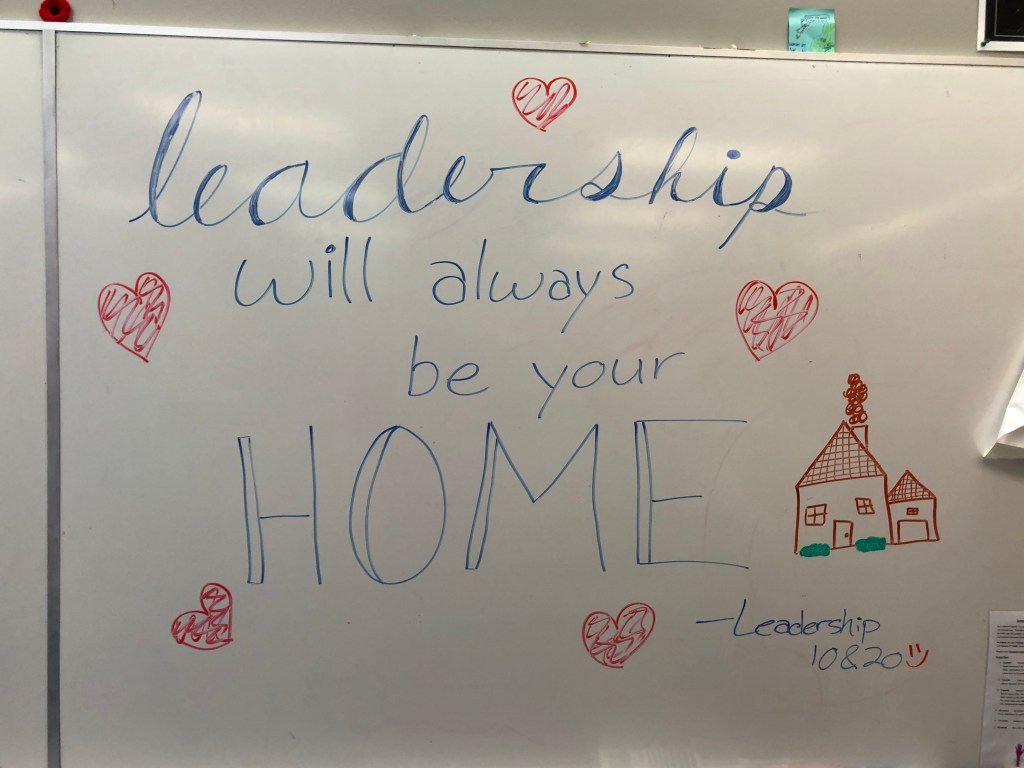 leadership
will always
be your
HOME
—Leadership
10&20